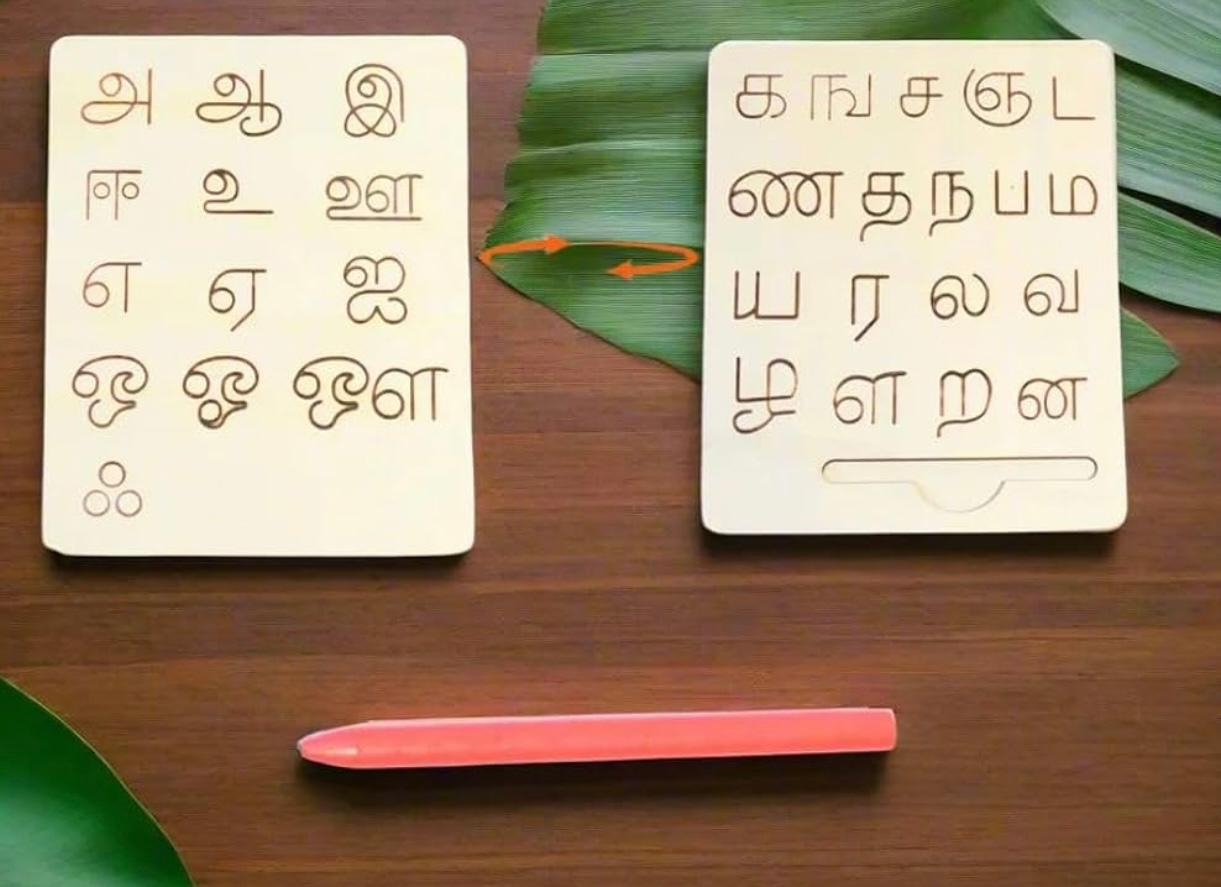 அ ஆ இ
ஈ உ ஊ
எ ஏ ஐ
ஒ ஓ ஔ
ஃ
க ங ச ஞ ட
ண த ந ப ம
ய ர ல வ
ழ ள ற ன